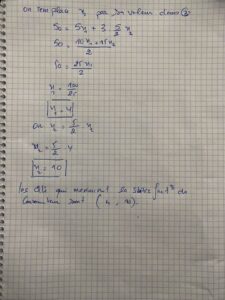 on remplace x₁ par son valeur dans (2)
50 = 5x₂ + 3 5/2 x₂
50 = 10x₂ + 15x₂ / 2
50 = 25x₂ / 2
x₂ = 100 / 25
x₂ = 4
on x₁ = 5/2 x₂
x₁ = 5/2 4
x₁ = 10
les qtés qui maximisent la satisfact° du
consommateur sont (4, 10).